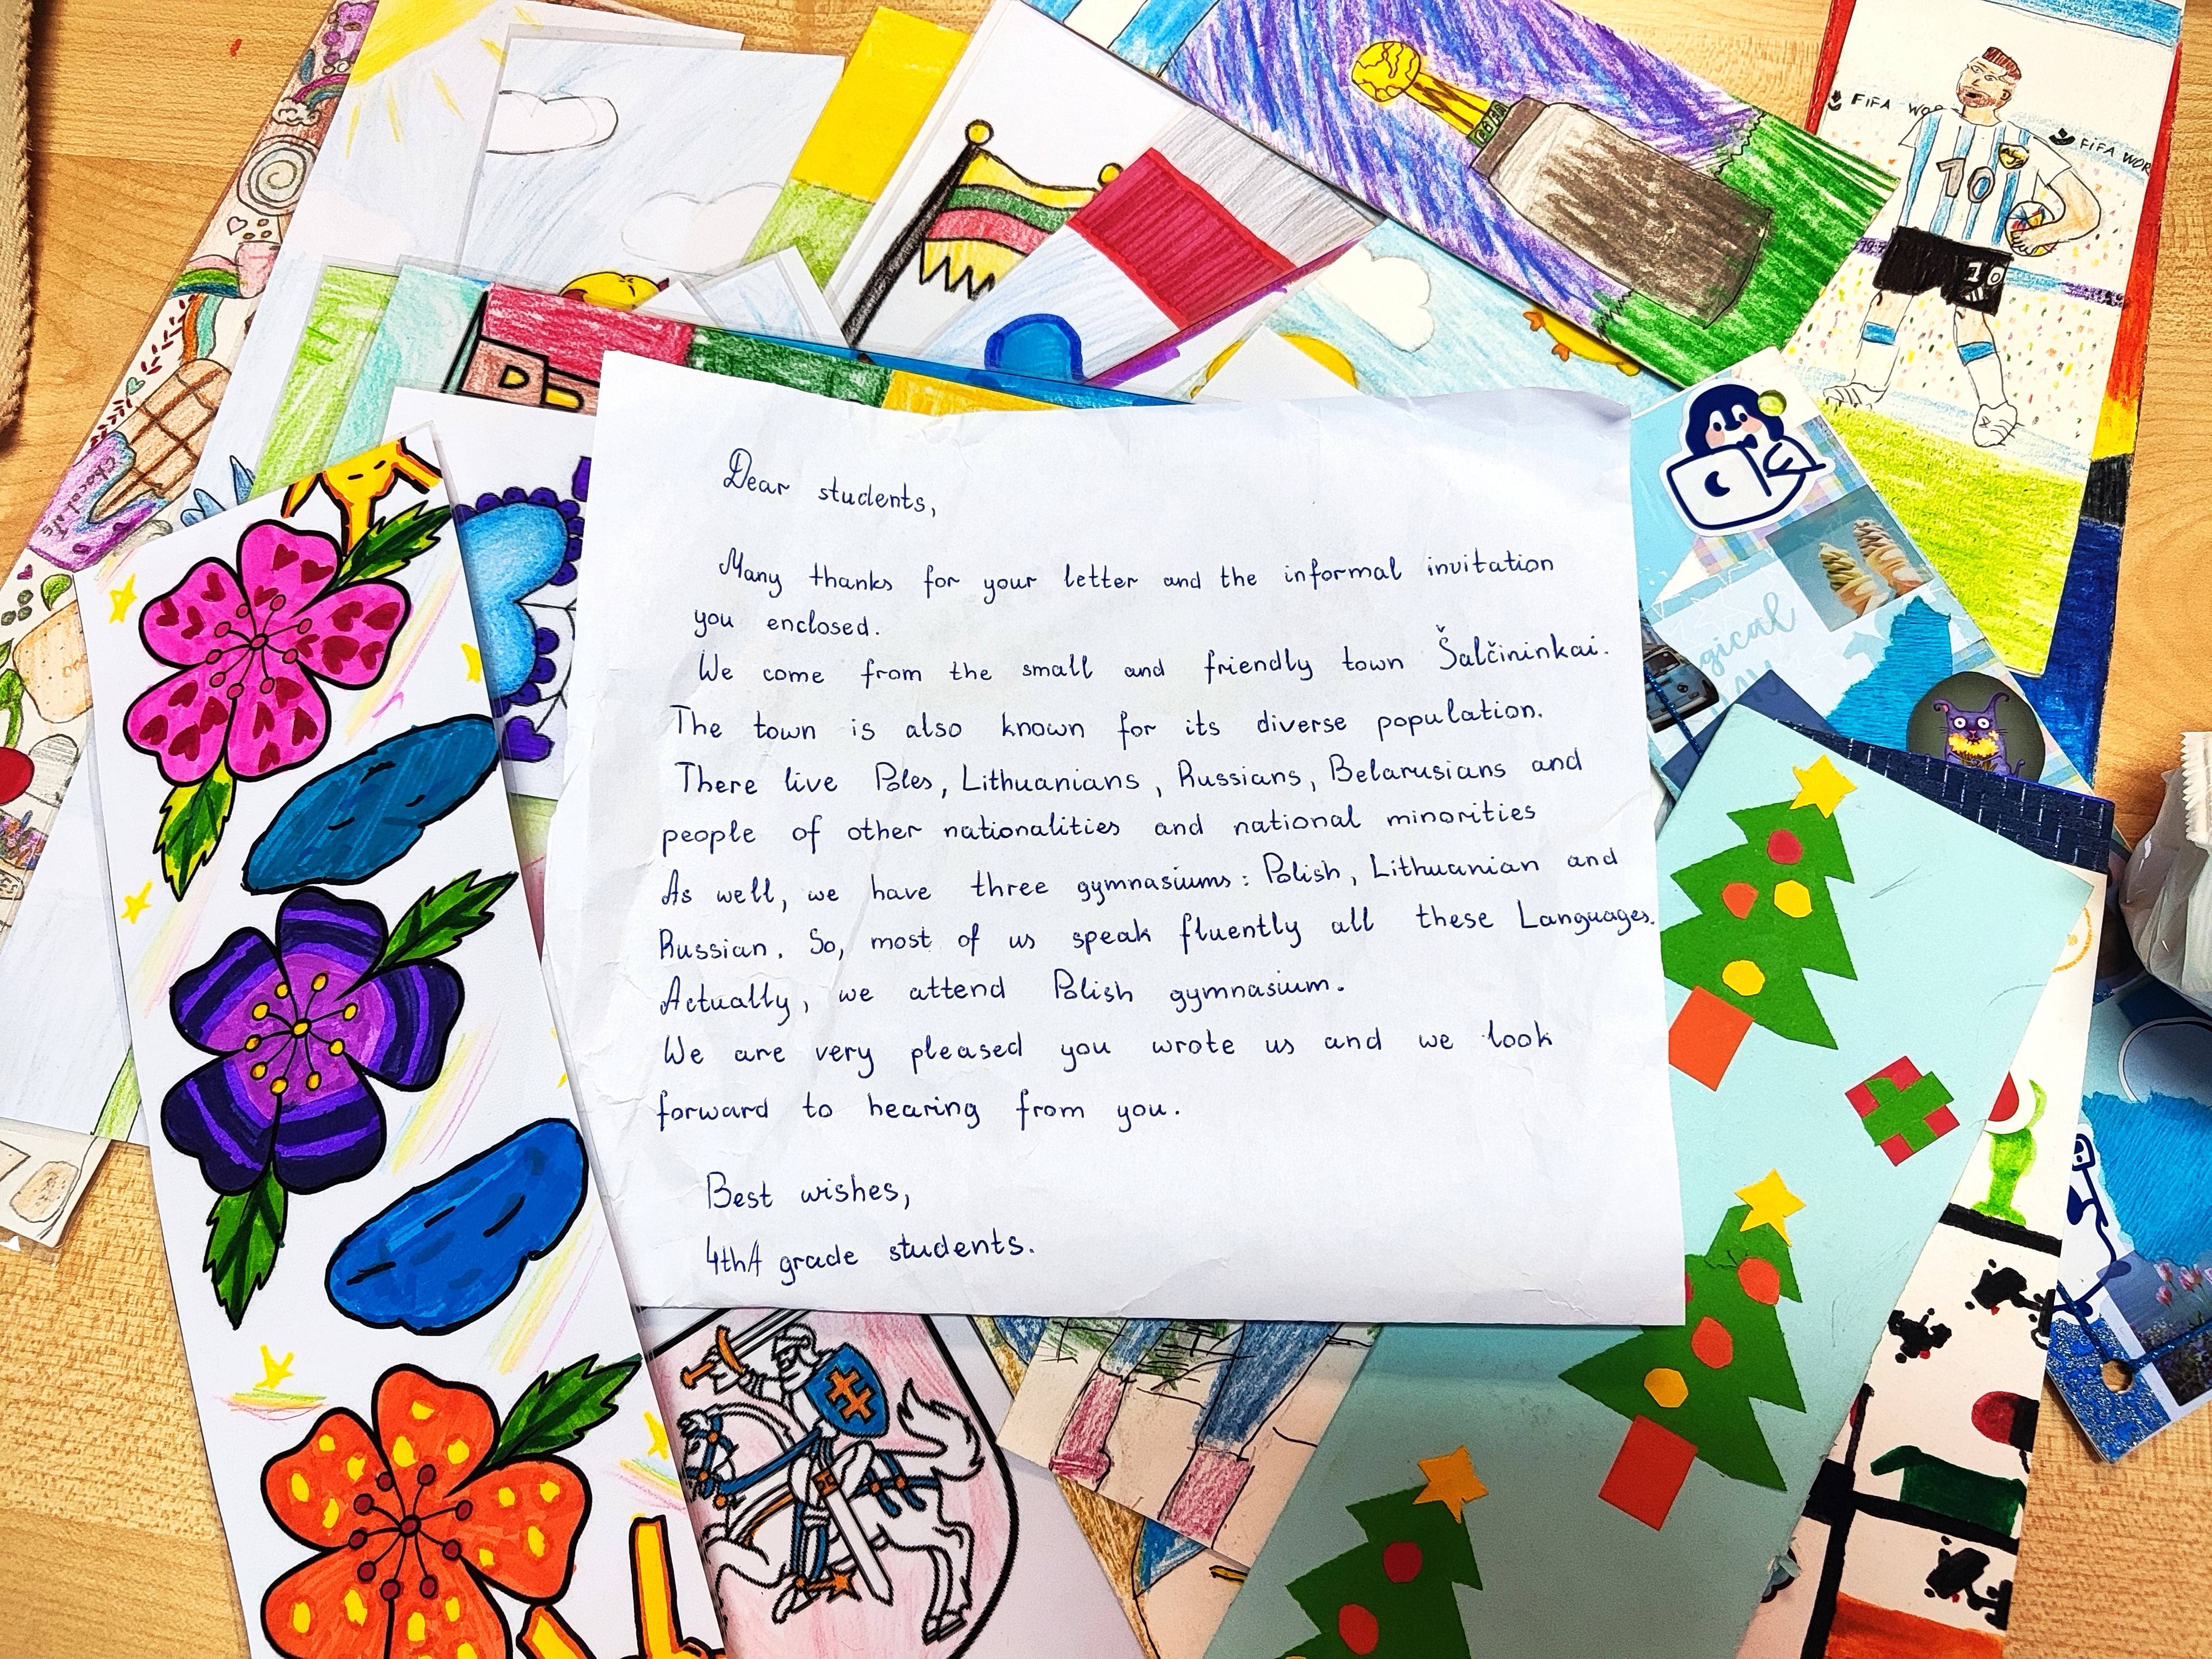 FIFA WO
FIFA WOR
10
10
chocolate
gical
Dear students,
Many thanks for your letter and the informal invitation
you enclosed.
We come from the small and friendly town Šalčininkai.
The town is also known for its diverse population.
There live Poles, Lithuanians, Russians, Belarusians and
people of other nationalities and national minorities
As well, we have three gymnasiums: Polish, Lithuanian and
Russian. So, most of us speak fluently all these Languages.
Actually, we attend Polish gymnasium.
We are very pleased you wrote us and we look
forward to hearing from you.
Best wishes,
4thA grade students.